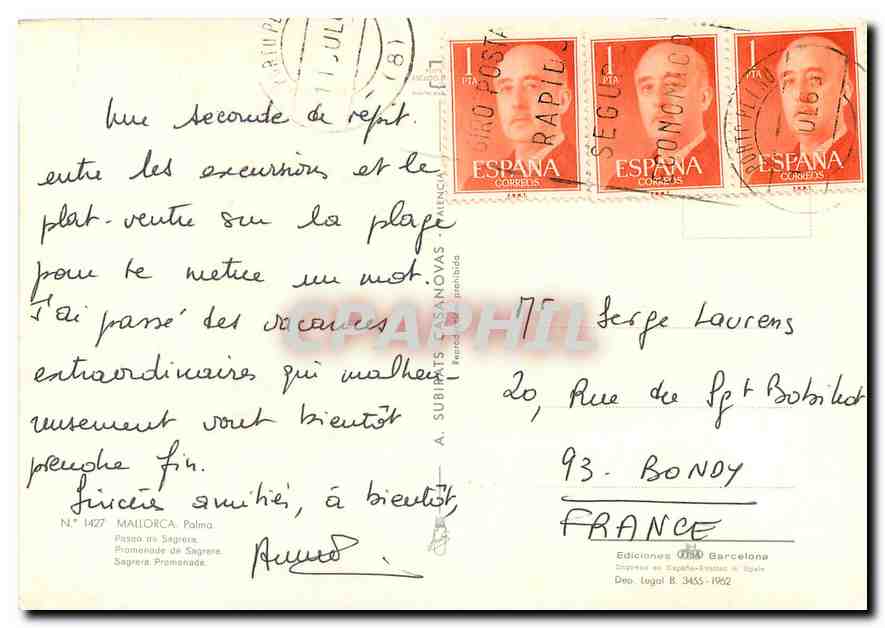 Une seconde de répit.
entre les excursions et le
plat-ventre sur la plage
pour te mettre un mot.
J'ai passé des vacances
extraordinaires qui malheu-
reusement vont bientôt
prendre fin.
Sincères amitiés, à bientôt,
N.º 1427 MALLORCA. Palma.
Paseo de Sagrera.
Promenade de Sagrera.
Sagrera Promenade.
A. SUBIRATS CASANOVAS - VALENCIA
Reprod. prohibida
CPAPHIL
1 PTA
ESPAÑA
CORREOS
1 PTA
ESPAÑA
CORREOS
1 PTA
ESPAÑA
CORREOS
GIRO POSTAL
RAPIDO
SEGURO
ECONOMICO
11 JUL 6
(8)
Mr Serge Laurens
20, Rue du Sgt Bobillot
93 - BONDY
FRANCE
Ediciones FISA Barcelona
Impreso en España-Printed in Spain
Dep. Legal B. 3455-1962